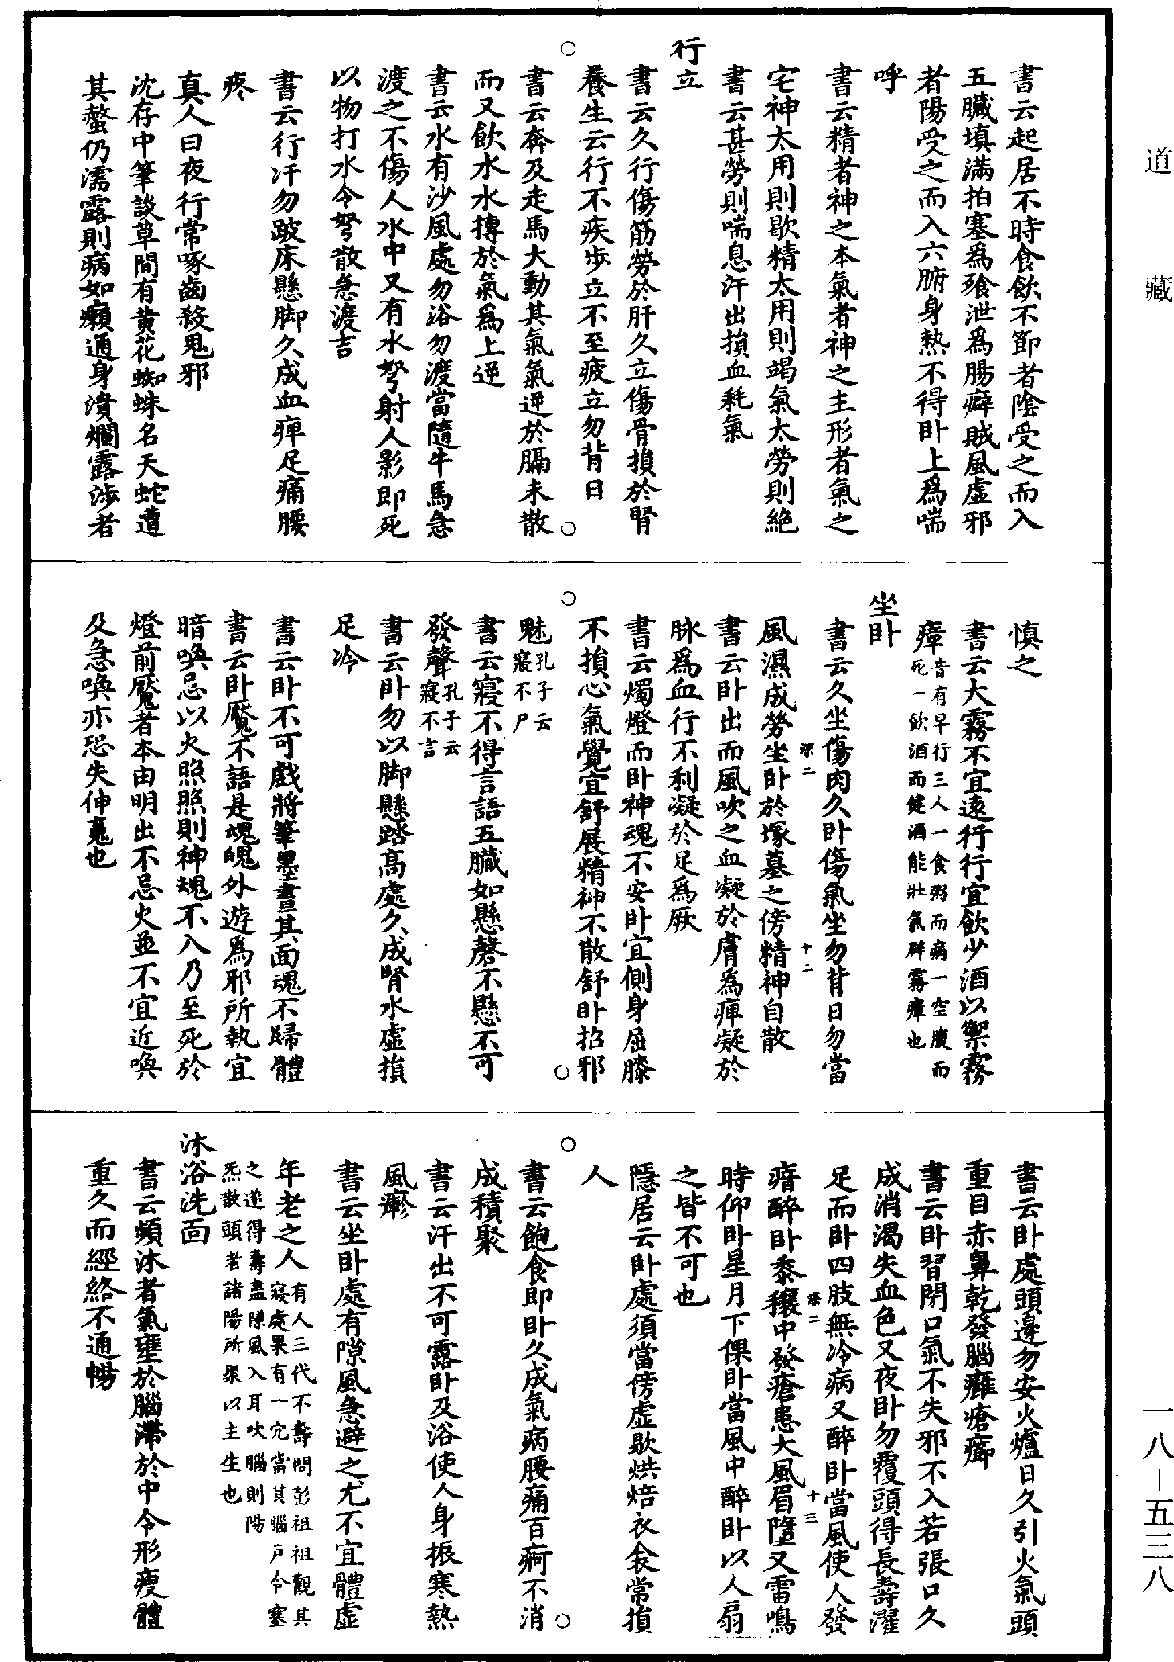 道藏
書云起居不時食飲不節者陰受之而入
五臟填滿拍塞為飱泄為腸癖賊風虛邪
者陽受之而入六腑身熱不得卧上為喘
呼
書云精者神之本氣者神之主形者氣之
宅神太用則歇精太用則竭氣太勞則絕
書云甚勞則喘息汗出損血耗氣
行立
書云久行傷筋勞於肝久立傷骨損於腎
養生云行不疾步立不至疲立勿背日
書云奔及走馬大動其氣氣逆於膈未散
而又飲水水摶於氣為上逆
書云水有沙風處勿浴勿渡當隨牛馬急
渡之不傷人水中又有水弩射人影即死
以物打水令弩散急渡吉
書云行汗勿跂床懸脚久成血痺足痛腰
疼
真人曰夜行常啄齒殺鬼邪
沈存中筆談草間有黃花蜘蛛名天蛇遭
其螫仍濡露則病如癩通身潰爛露涉者
慎之
書云大霧不宜遠行行宜飲少酒以禦霧
瘴昔有早行三人一食粥而病一空腹而
死一飲酒而健酒能壯氣辟霧瘴也
坐卧
書云久坐傷肉久卧傷氣坐勿背日勿當
風濕成勞坐卧於塚墓之傍精神自散
書云卧出而風吹之血凝於膚為痺凝於
脉為血行不利凝於足為厥
書云燭燈而卧神魂不安卧宜側身屈膝
不損心氣覺宜舒展精神不散舒卧招邪
魅孔子云
寢不尸
書云寢不得言語五臟如懸磬不懸不可
發聲孔子云
寢不言
書云卧勿以脚懸踏高處久成腎水虛損
足冷
書云卧不可戲將筆墨畫其面魂不歸體
書云卧魘不語是魂魄外遊為邪所執宜
暗喚忌以火照照則神魂不入乃至死於
燈前魘者本由明出不忌火並不宜近喚
及急喚亦恐失伸竟也
書云卧處頭邊勿安火爐日久引火氣頭
重目赤鼻乾發腦癰瘡癤
書云卧習閉口氣不失邪不入若張口久
成消渴失血色又夜卧勿覆頭得長壽濯
足而卧四肢無冷病又醉卧當風使人發
瘖醉卧黍穰中發瘡患大風眉墮又雷鳴
時仰卧星月下倮卧當風中醉卧以人扇
之皆不可也
隱居云卧處須當傍虛歇烘焙衣衾常損
人
書云飽食即卧久成氣病腰痛百痾不消
成積聚
書云汗出不可露卧及浴使人身振寒熱
風癮
書云坐卧處有隙風急避之尤不宜體虛
年老之人有人三代不壽問彭祖祖觀其
寢處果有一穴當其腦戶令塞
之遂得壽蓋隙風入耳吹腦則陽
炁散頭者諸陽所聚以主生也
沐浴洗面
書云頻沐者氣壅於腦滯於中令形瘦體
重久而經絡不通暢
一八—五三八